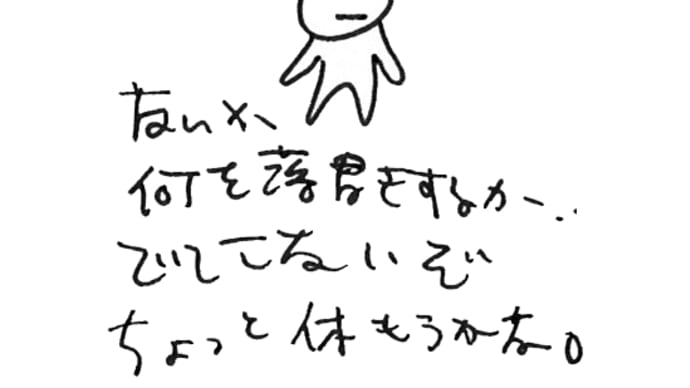 ないか、
何を落書きするか…
でてこないぞ
ちょっと休もうかな。